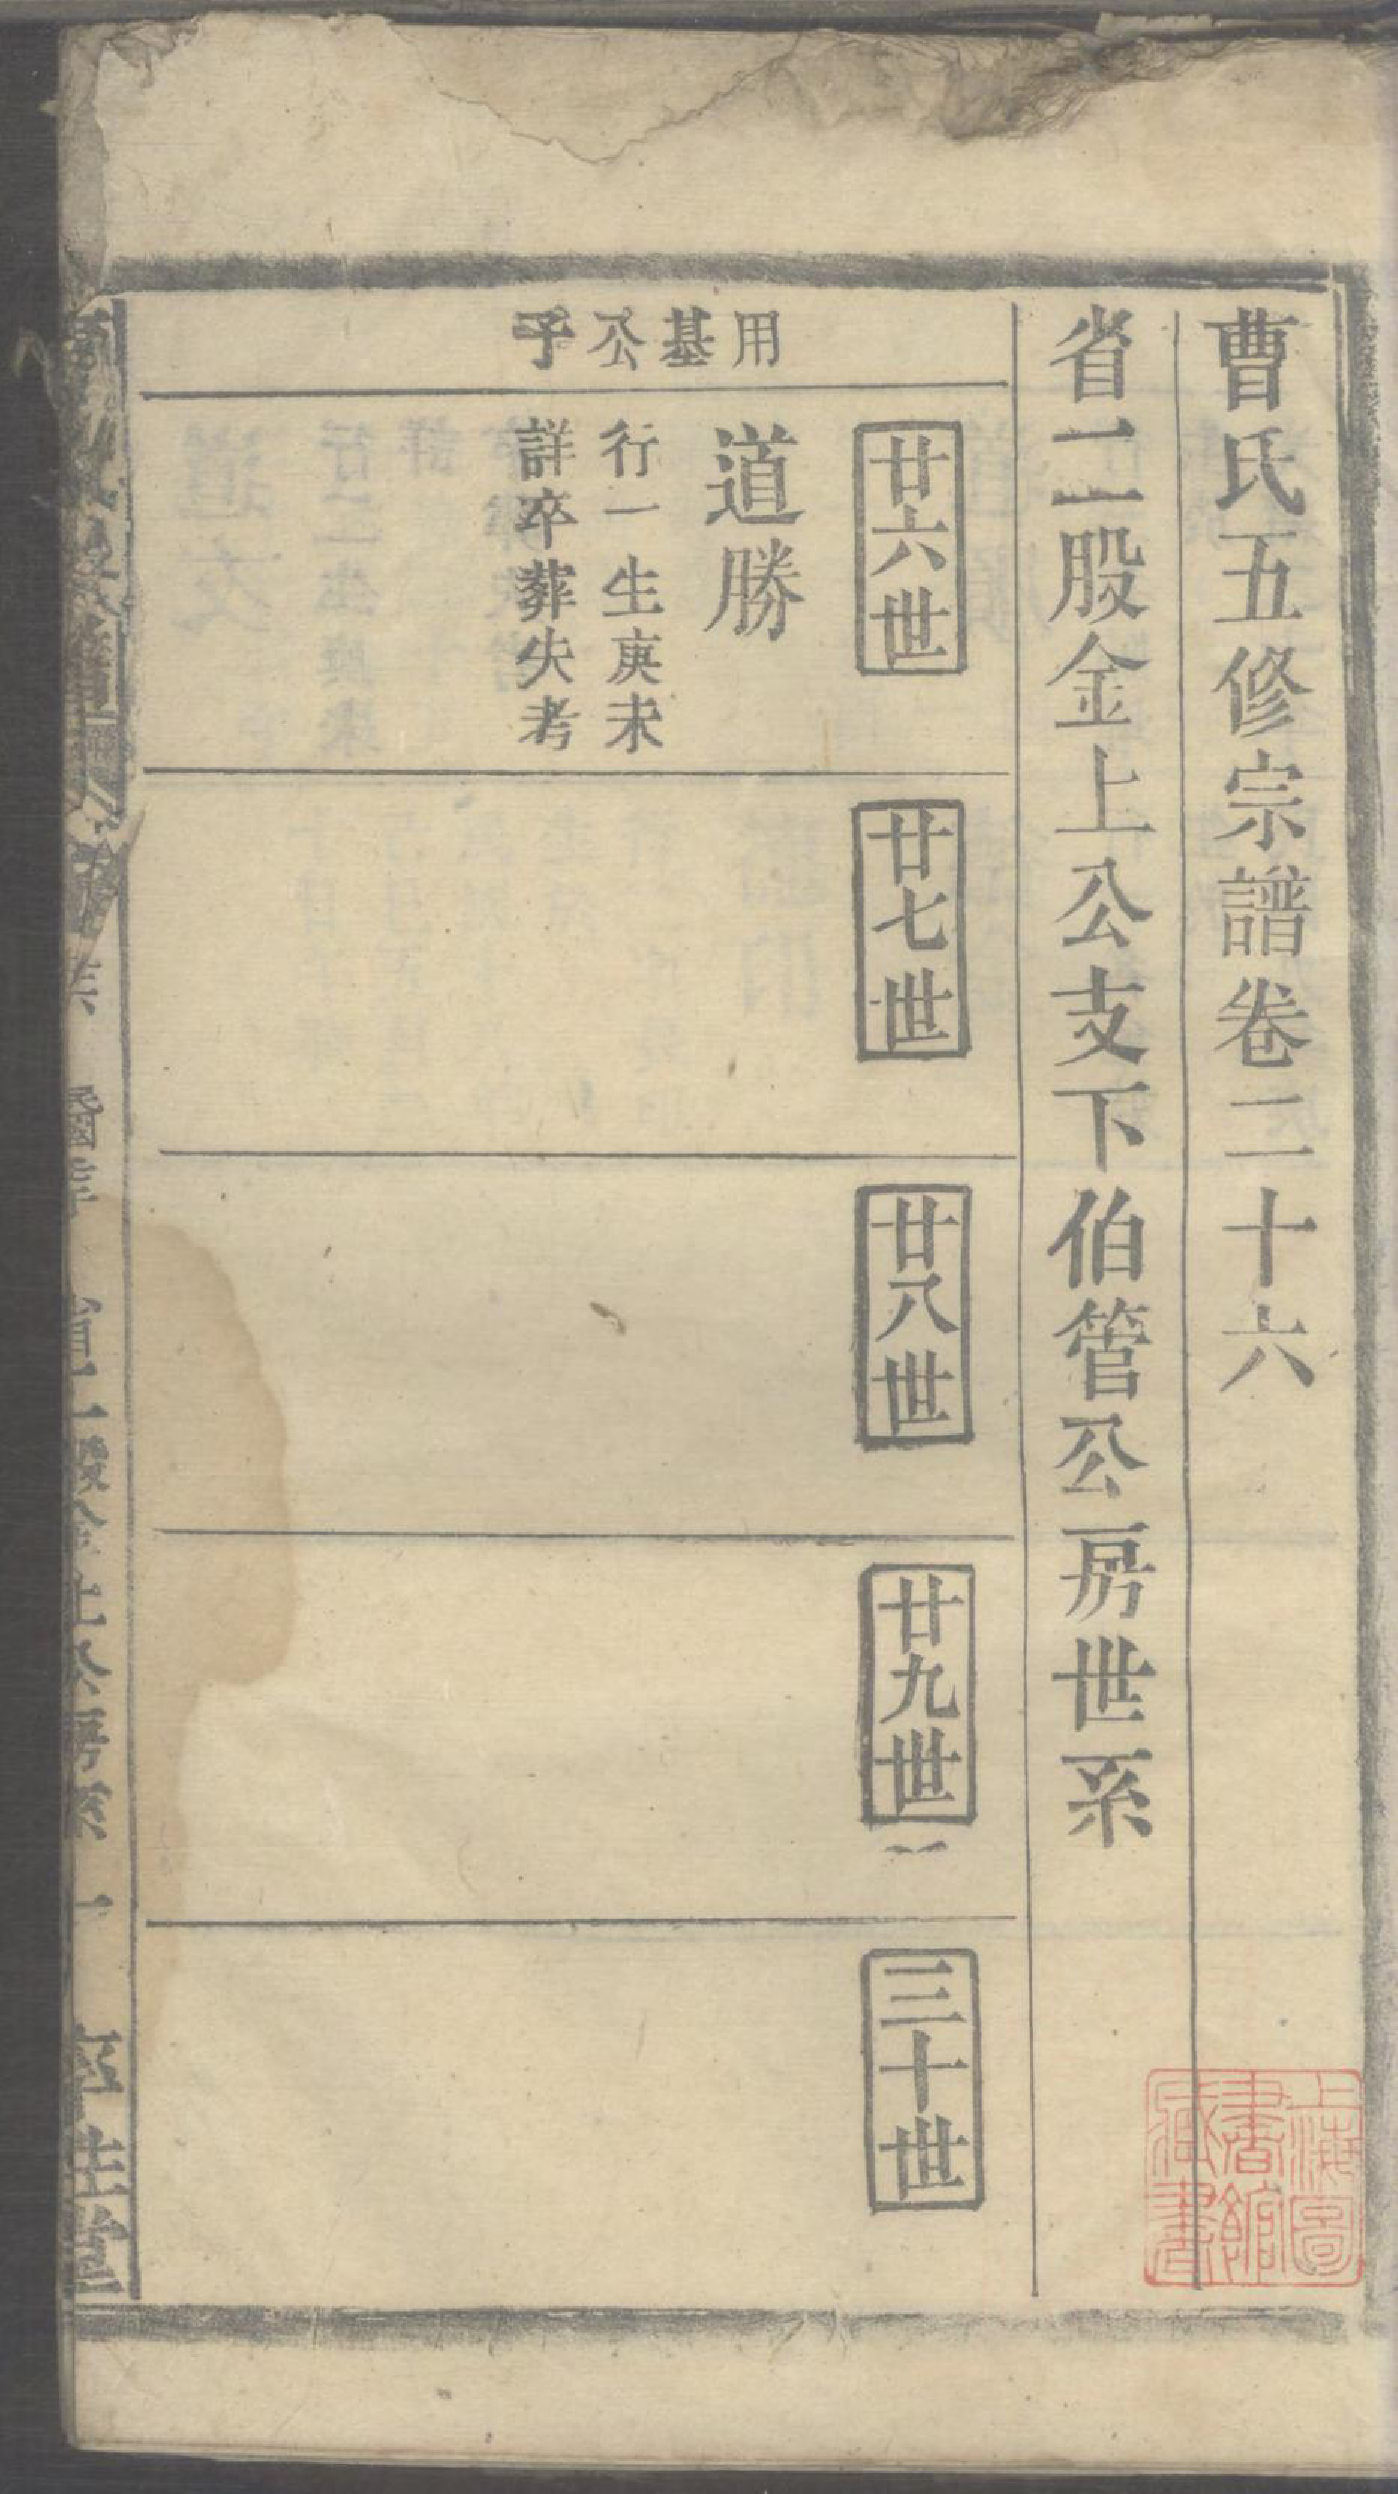 曹氏五修宗譜卷二十六
省二股金上公支下伯管公房世系
用基公子
廿六世
道勝
行一生庚未
詳卒葬失考
廿七世
廿八世
廿九世
三十世
上海圖
書館
藏書